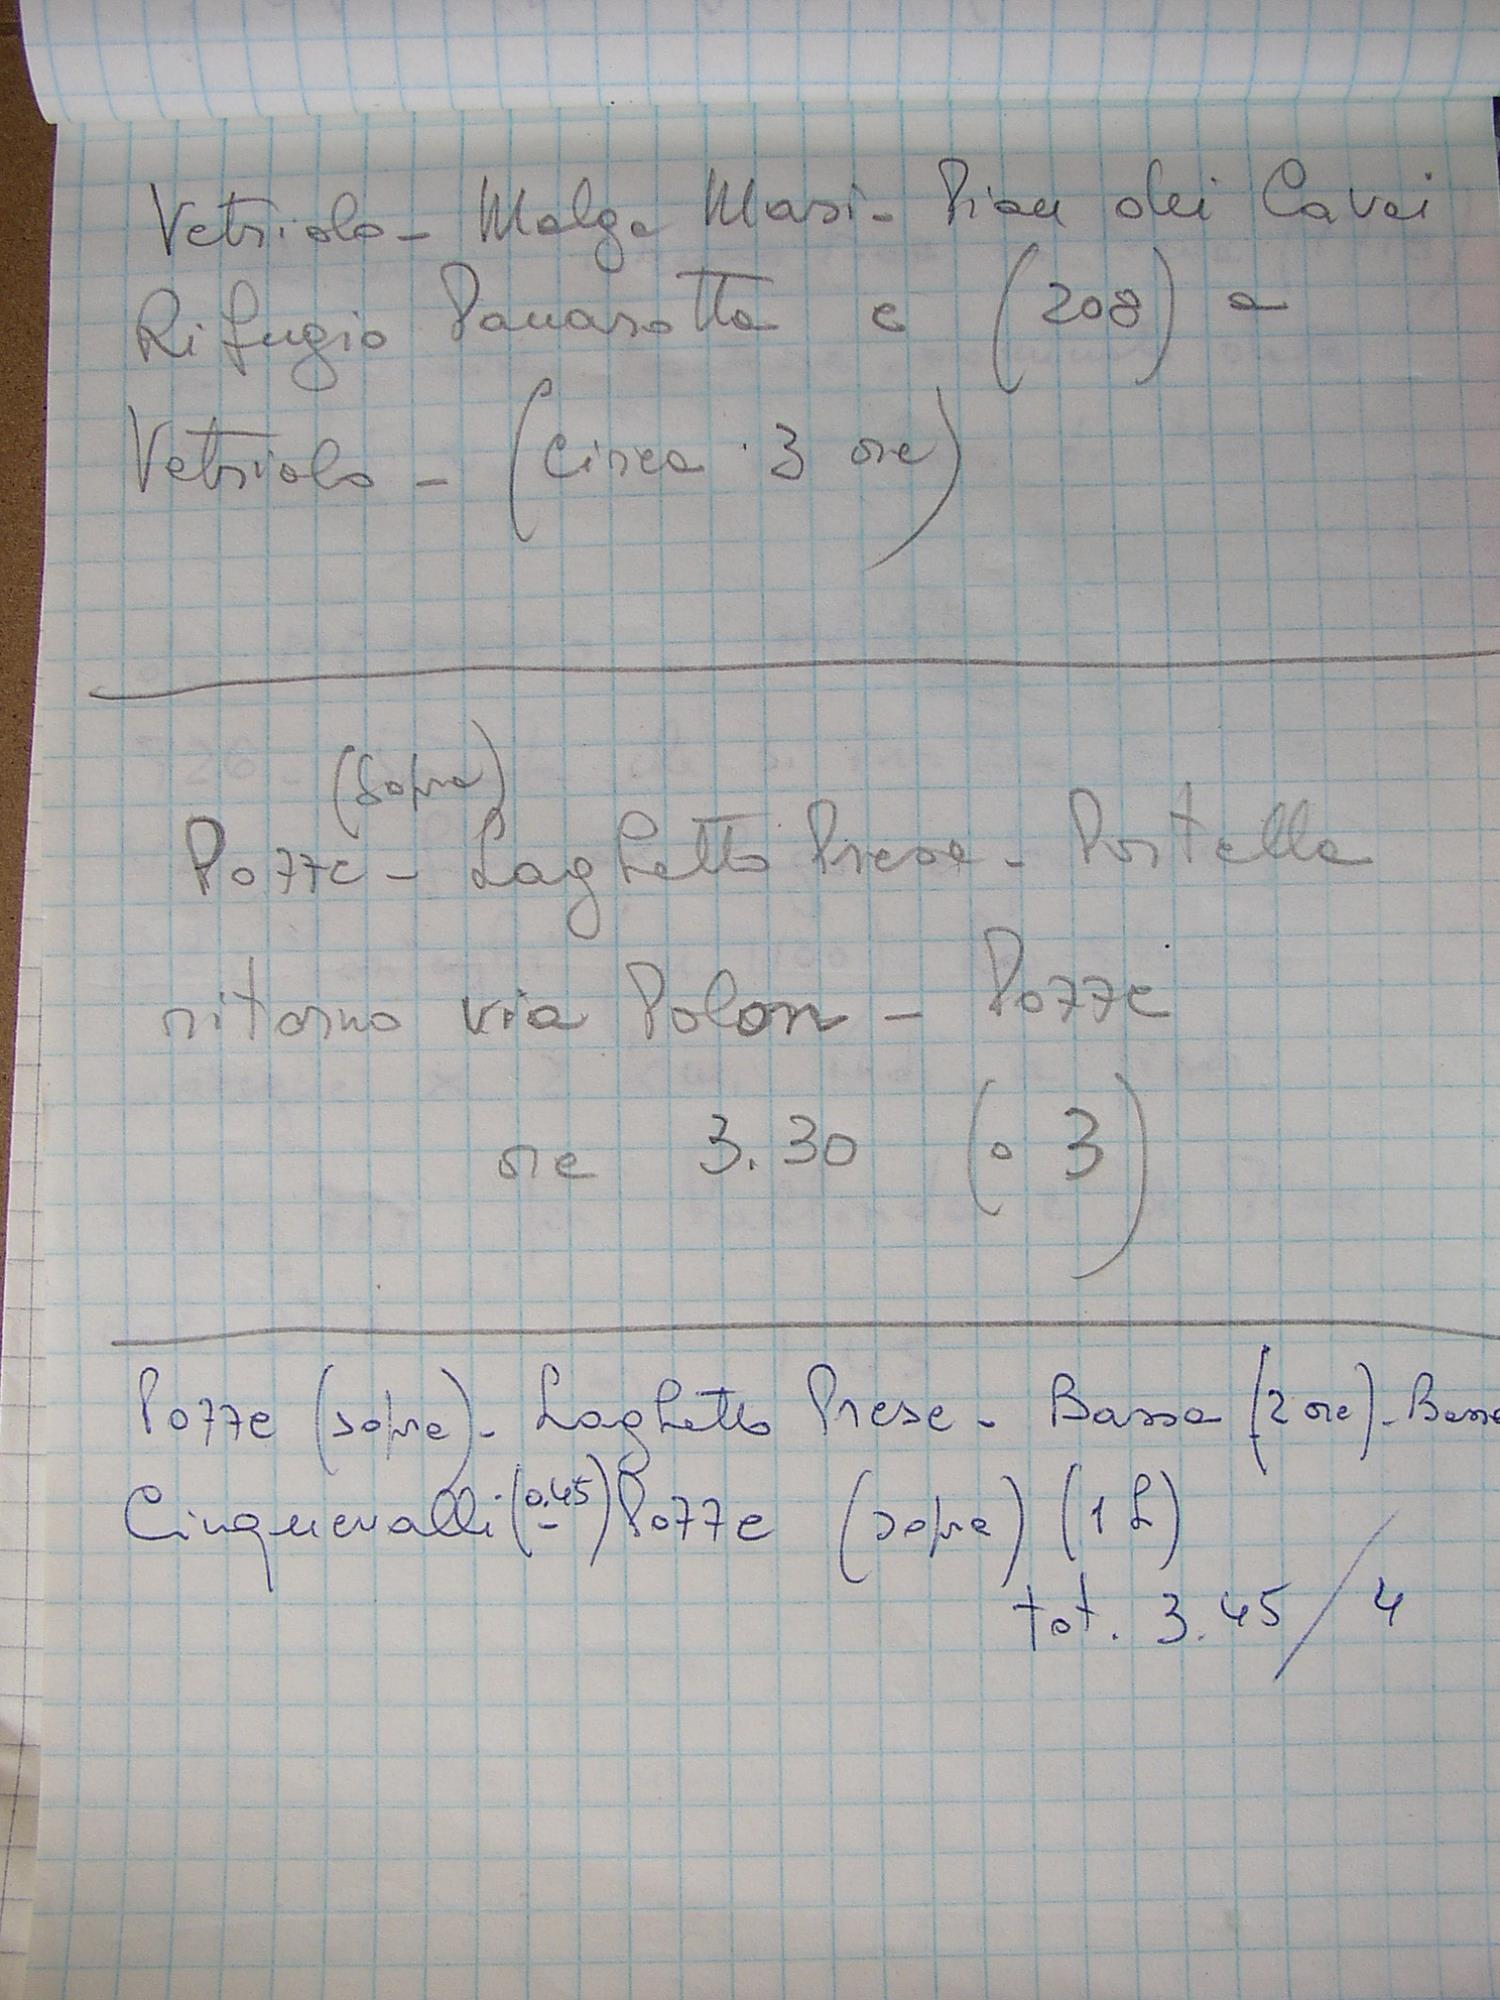 Vetriolo - Malga Masi - Pian dei Cavai
Rifugio Panarotta e (208) a
Vetriolo - (circa 3 ore)
(sopra)
Pozze - Laghetto Prese - Portella
ritorno via Polon - Pozze
ore 3.30 (o 3)
Pozze (sopra) - Laghetto Prese - Bassa (2 ore) - Bassa
Cinquevalli - (0.45) Pozze (sopra) (1 h)
tot. 3.45 / 4